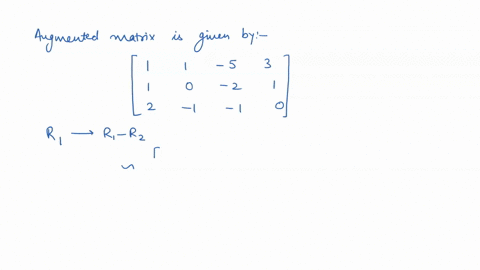 Augmented matrix is given by:-
[ 1 1 -5 3
1 0 -2 1
2 -1 -1 0 ]
R₁ → R₁-R₂
~ [